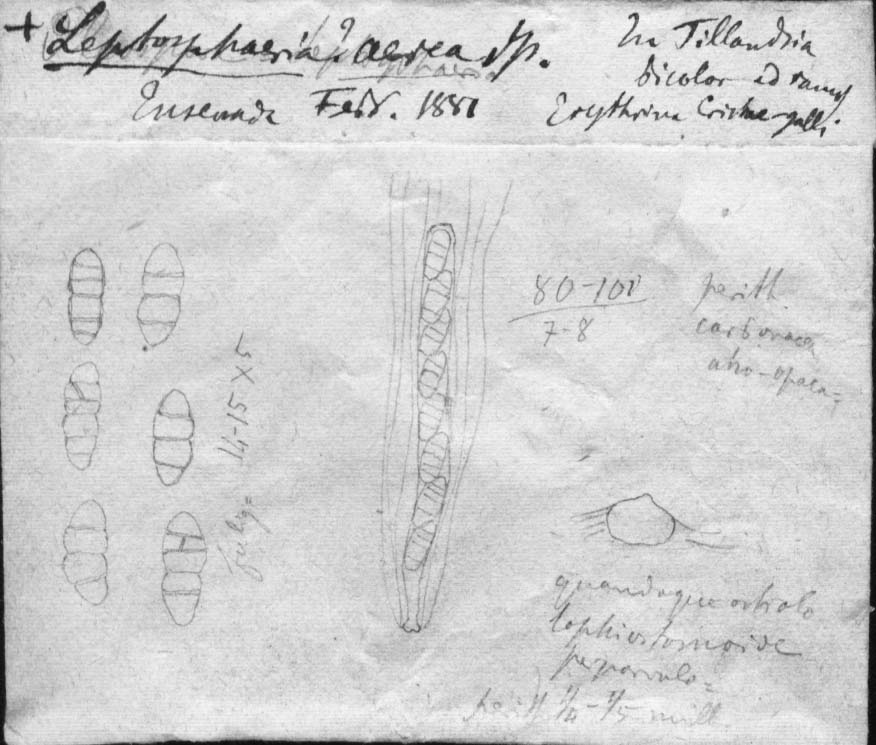 + Leptosphaeria? aerea Sp.
In Tillandsia
bicolor ad ramos
Erythrina Crista-galli
Ensenada Febr. 1881
80-100
7-8
perith
carbonacea
atro-opaca=
14-15 X 5
fulig=
quandoque ostiolo
lophiostomoide
perparvulo=
perith 1/4-1/5 mill